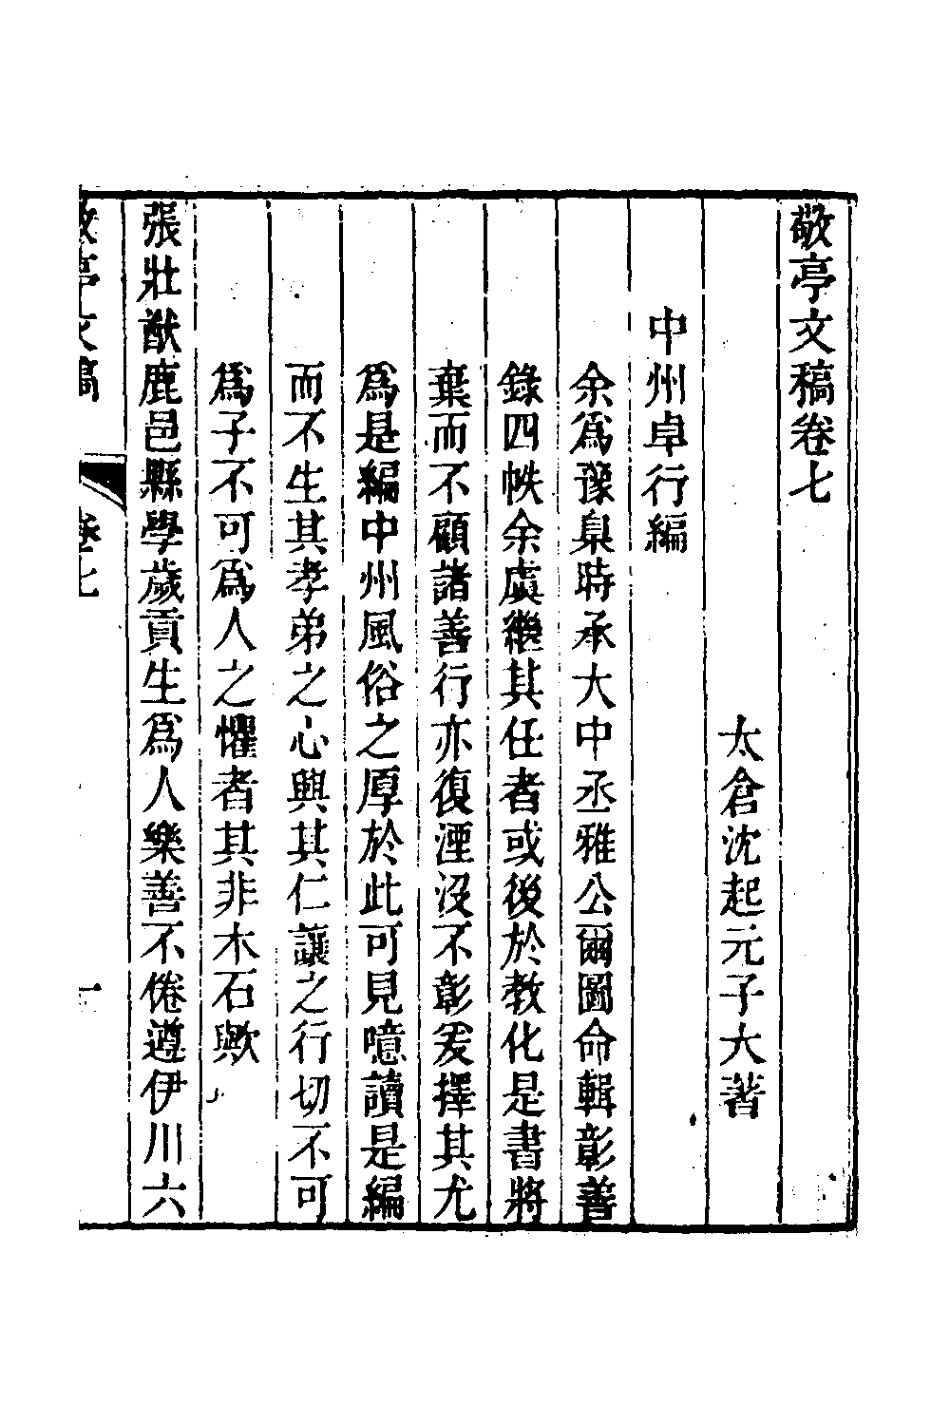 敬亭文稿卷七
太倉沈起元子大著
中州卓行編
余爲豫臬時承大中丞雅公爾圖命輯彰善
錄四帙余虞繼其任者或後於教化是書將
棄而不顧諸善行亦復湮沒不彰爰擇其尤
爲是編中州風俗之厚於此可見噫讀是編
而不生其孝弟之心興其仁讓之行切不可
爲子不可爲人之懼者其非木石歟
張壯猷鹿邑縣學歲貢生爲人樂善不倦遵伊川六
敬亭文稿 卷七 一